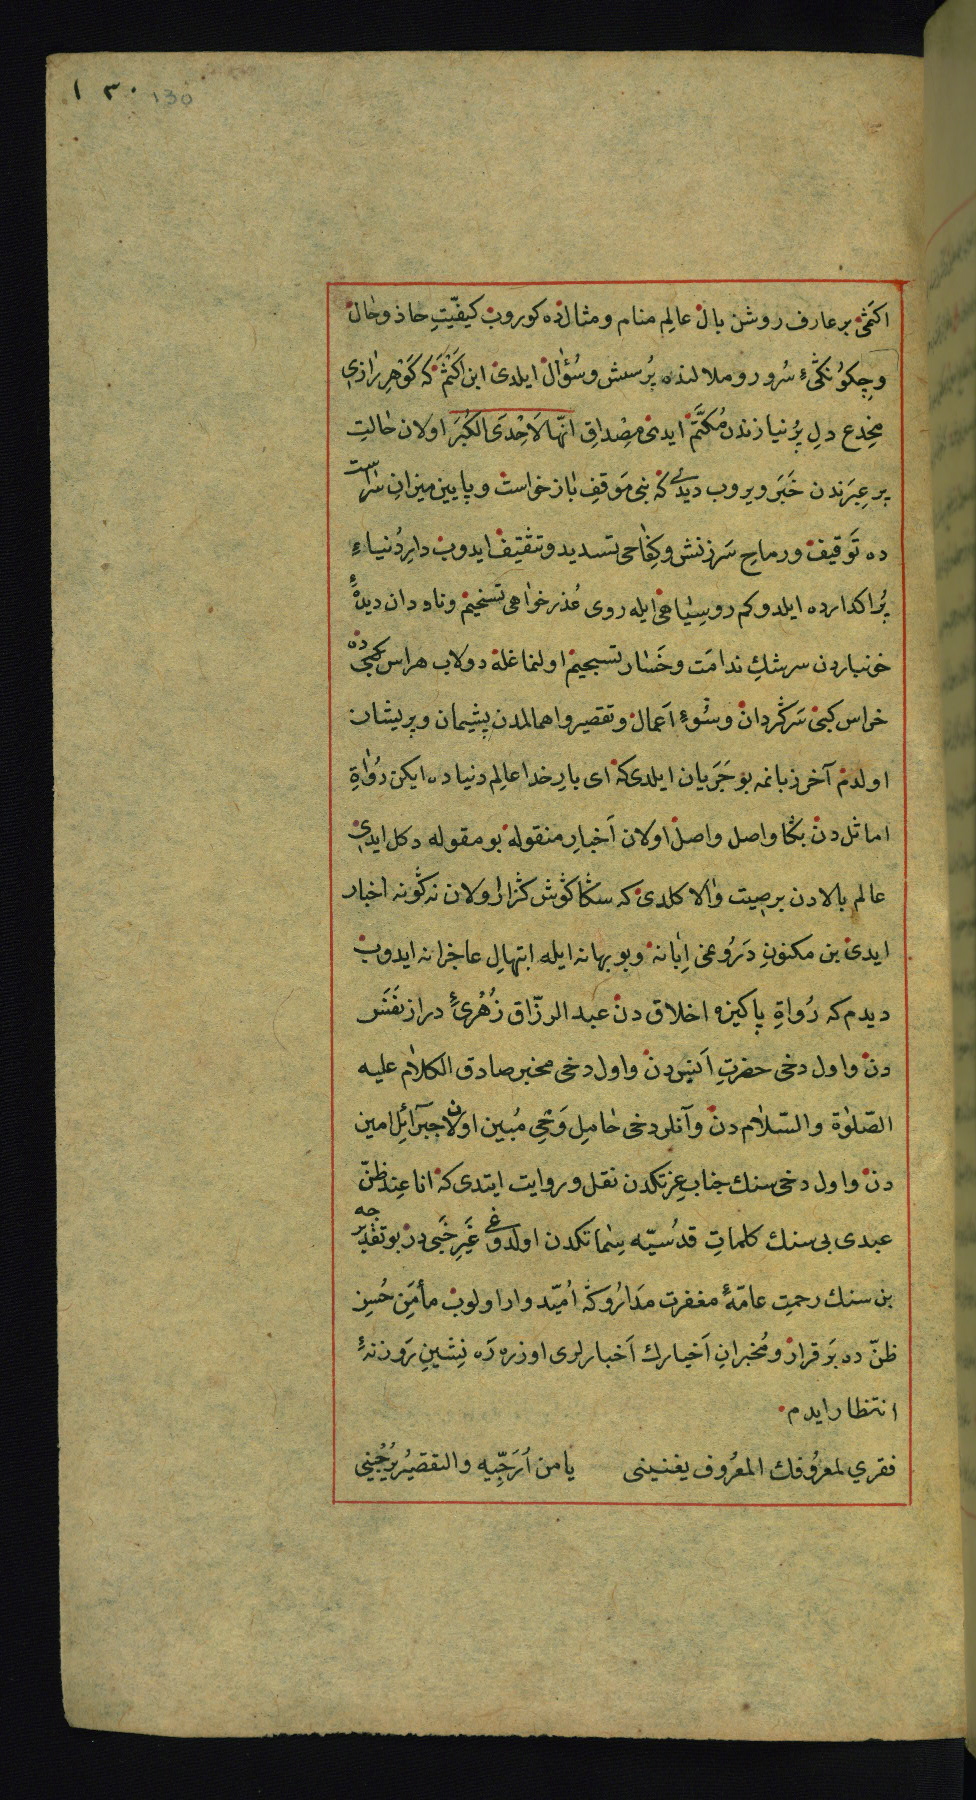 ١٣٠ 130
اکثمی بر عارف روشن بال عالم منام و مثالده کوروب کیفیّتِ حاذ و حال
و چکونکیٔ سُرور و ملالنده پُرسش و سُؤال ایلدی ابن اکثم که کَوْهَرِ رازی
مخدع دلِ پُر نیازندن مُکتَّم ایدی مِصْداقِ انّها لَاِحْدَی الکُبَرَ اولان حالتِ
پر عِبَرندن خَبَر ویروب دیدی که بنی مَوقفِ باز خواست و پایین میزانِ راست
ده تَوقیف و رماحِ سَرزنش و کِفاحی تسدید و تثقیف ایدوب دایرِ دُنیاءِ
پُر اکدارده ایلدوکم روسیاهی ایله روی عُذر خواهی تسخیم و ناودان دیدهٔ
خونباردن سرشكِ ندامَت و خَسار تسجیم اولنماغله دولاب هراس کمی ده
خراس کبی سَرگردان و سُوءِ اَعمال و تقصیر و اهمالمدن پشیمان و پریشان
اولدم آخر زبانمه بو جَرَیان ایلدی که ای بارِ خدا عالم دنیاده ایکن رُواةِ
اماثل دن بکا واصل و اصل اولان اَخبارِ منقوله بو مقوله دکل ایدی
عالم بالادن بر صِیت والا کلدی که سکا کوش کزار اولان نه کونه اخبار
ایدی بن مکنونِ دَرُوغی اِبانه و بو بهانه ایله ابتهالِ عاجزانه ایدوب
دیدم که رُواةِ پاکیزه اخلاق دن عبد الرزّاق زُهْریٔ دراز نفَس
دن و اول دخی حضرتِ اَنیس دن و اول دخی مخبر صادق الکلام علیه
الصّلوٰة والسّلام دن و آنلر دخی حامِلِ وَحْیِ مُبین اولان جبرآئلِ امین
دن و اول دخی سنك جنابِ عِزتکدن نقل و روایت ایتدی که انا عِند ظنّ
عبدی بی سنك کلماتِ قدسُیّه سِماتکدن اولدوغی غَیرِ خَبی در بو تقدیرجه
بن سنك رحمتِ عامّهٔ مغفرت مَدارُوکه اُمیّدوار اولوب مأمَنِ حُسنِ
ظنّ ده بَرقرار و مُخبرانِ اَخیارك اَخبارلری اوزره رَه نِشینِ رَوزنهٔ
انتظار ایدم
فقري لمعرُوفك المعرُوف یغنینی یا من اُرَجِّیه والتقصیرُ یُرْجینی